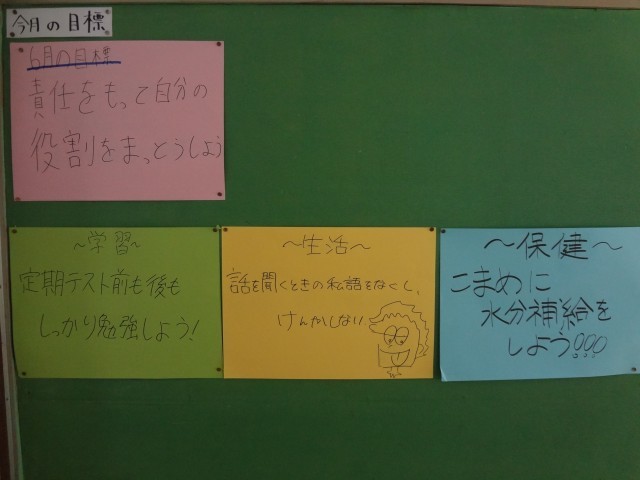 今月の目標
6月の目標
責任をもって自分の
役割をまっとうしよう
～学習～
定期テスト前も後も
しっかり勉強しよう!
～生活～
話を聞くときの私語をなくし、
けんかしない
～保健～
こまめに
水分補給を
しよう!!!